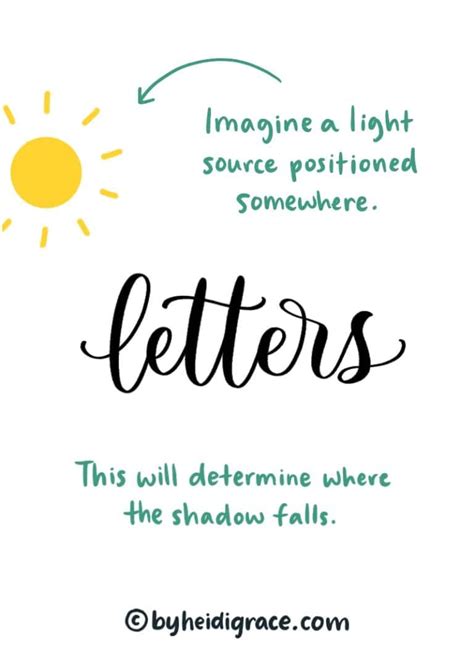 Imagine a light
source positioned
somewhere.
letters
This will determine where
the shadow falls.
©byheidigrace.com